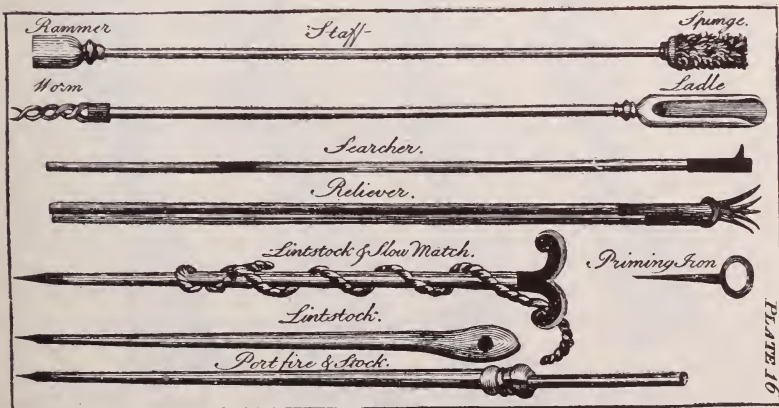 Rammer Staff Spunge.
Worm Ladle
Searcher.
Reliever.
Lintstock & Slow Match.
Priming Iron
Lintstock.
Portfire & Stock.
PLATE 16